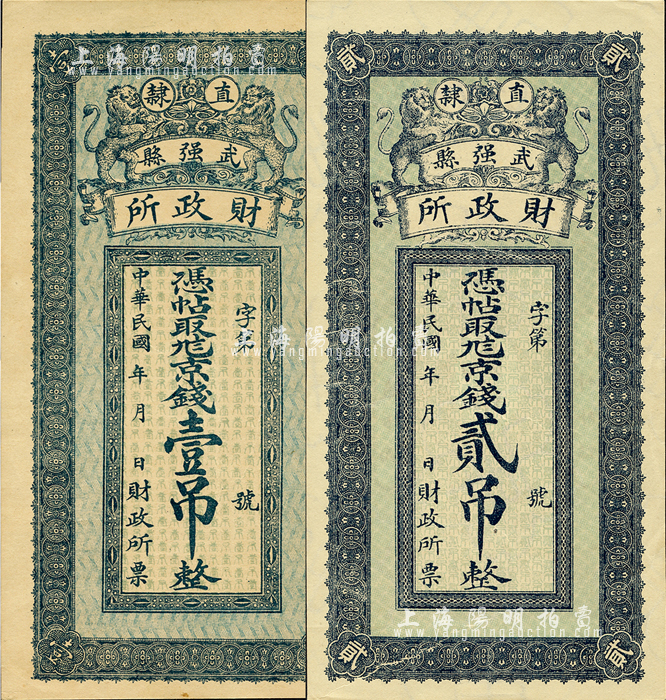 上海陽明拍賣
www.yangmingauction.com
直隸
武强縣
財政所
字第 號
憑帖取京錢壹吊整
中華民國 年 月 日財政所票
貳
貳
直隸
武强縣
財政所
字第 號
憑帖取京錢貳吊整
中華民國 年 月 日財政所票
貳
貳
上海陽明拍賣
www.yangmingauction.com
上海陽明拍賣
www.yangmingauction.com